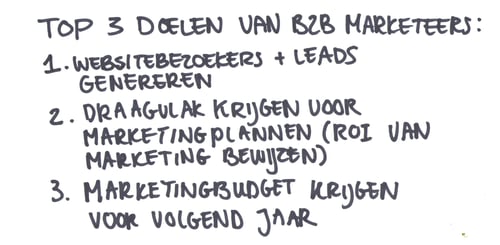 TOP 3 DOELEN VAN B2B MARKETEERS:
1. WEBSITEBEZOEKERS + LEADS
GENEREREN
2. DRAAGVLAK KRIJGEN VOOR
MARKETINGPLANNEN (ROI VAN
MARKETING BEWIJZEN)
3. MARKETINGBUDGET KRIJGEN
VOOR VOLGEND JAAR